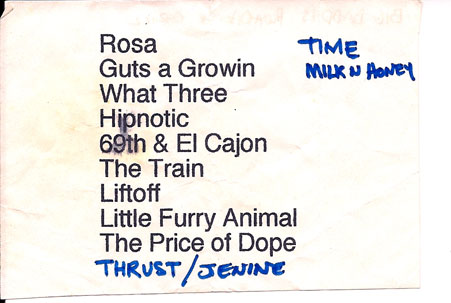 Rosa
Guts a Growin
What Three
Hipnotic
69th & El Cajon
The Train
Liftoff
Little Furry Animal
The Price of Dope
THRUST/JENINE
TIME
MILK N HONEY